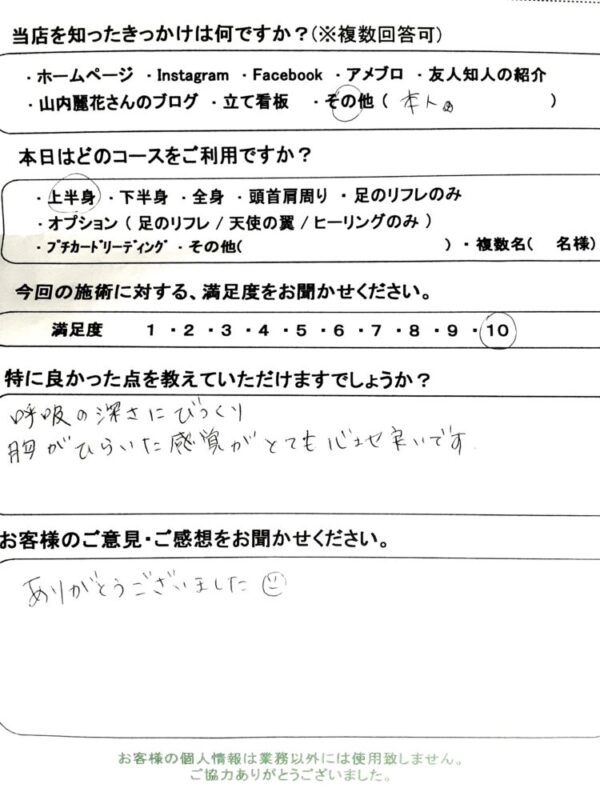 当店を知ったきっかけは何ですか？(※複数回答可)
・ホームページ ・Instagram ・Facebook ・アメブロ ・友人知人の紹介
・山内麗花さんのブログ ・立て看板 ・その他 ( 本人 )
本日はどのコースをご利用ですか？
・上半身 ・下半身 ・全身 ・頭首肩周り ・足のリフレのみ
・オプション ( 足のリフレ / 天使の翼 / ヒーリングのみ )
・プチカードリーディング ・その他( ) ・複数名( 名様)
今回の施術に対する、満足度をお聞かせください。
満足度 1 ・2 ・3 ・4 ・5 ・6 ・7 ・8 ・9 ・10
特に良かった点を教えていただけますでしょうか？
呼吸の深さにびっくり
胸がひらいた感覚がとても心地良いです
お客様のご意見・ご感想をお聞かせください。
ありがとうございました
お客様の個人情報は業務以外には使用致しません。
ご協力ありがとうございました。